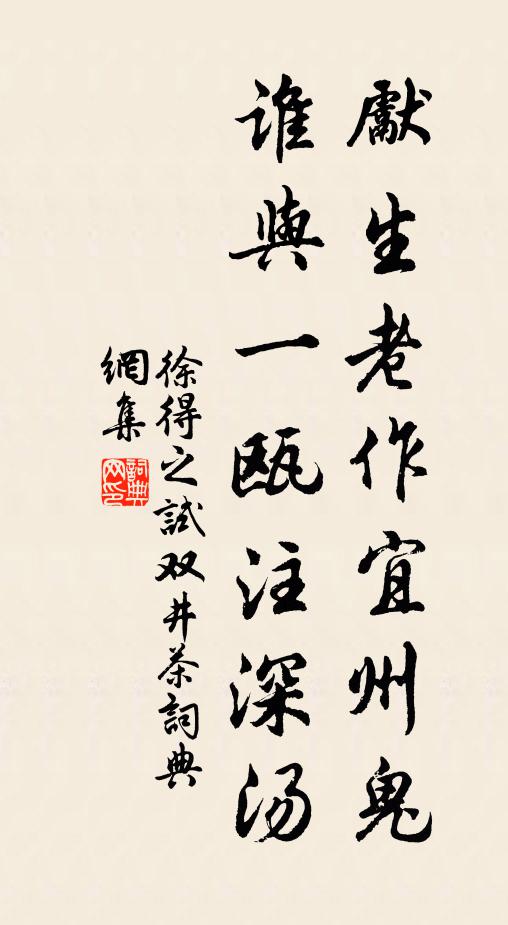 獻生老作宜州鬼
誰與一甌注深汤
徐得之試双井茶詞典
網集
詞典网印